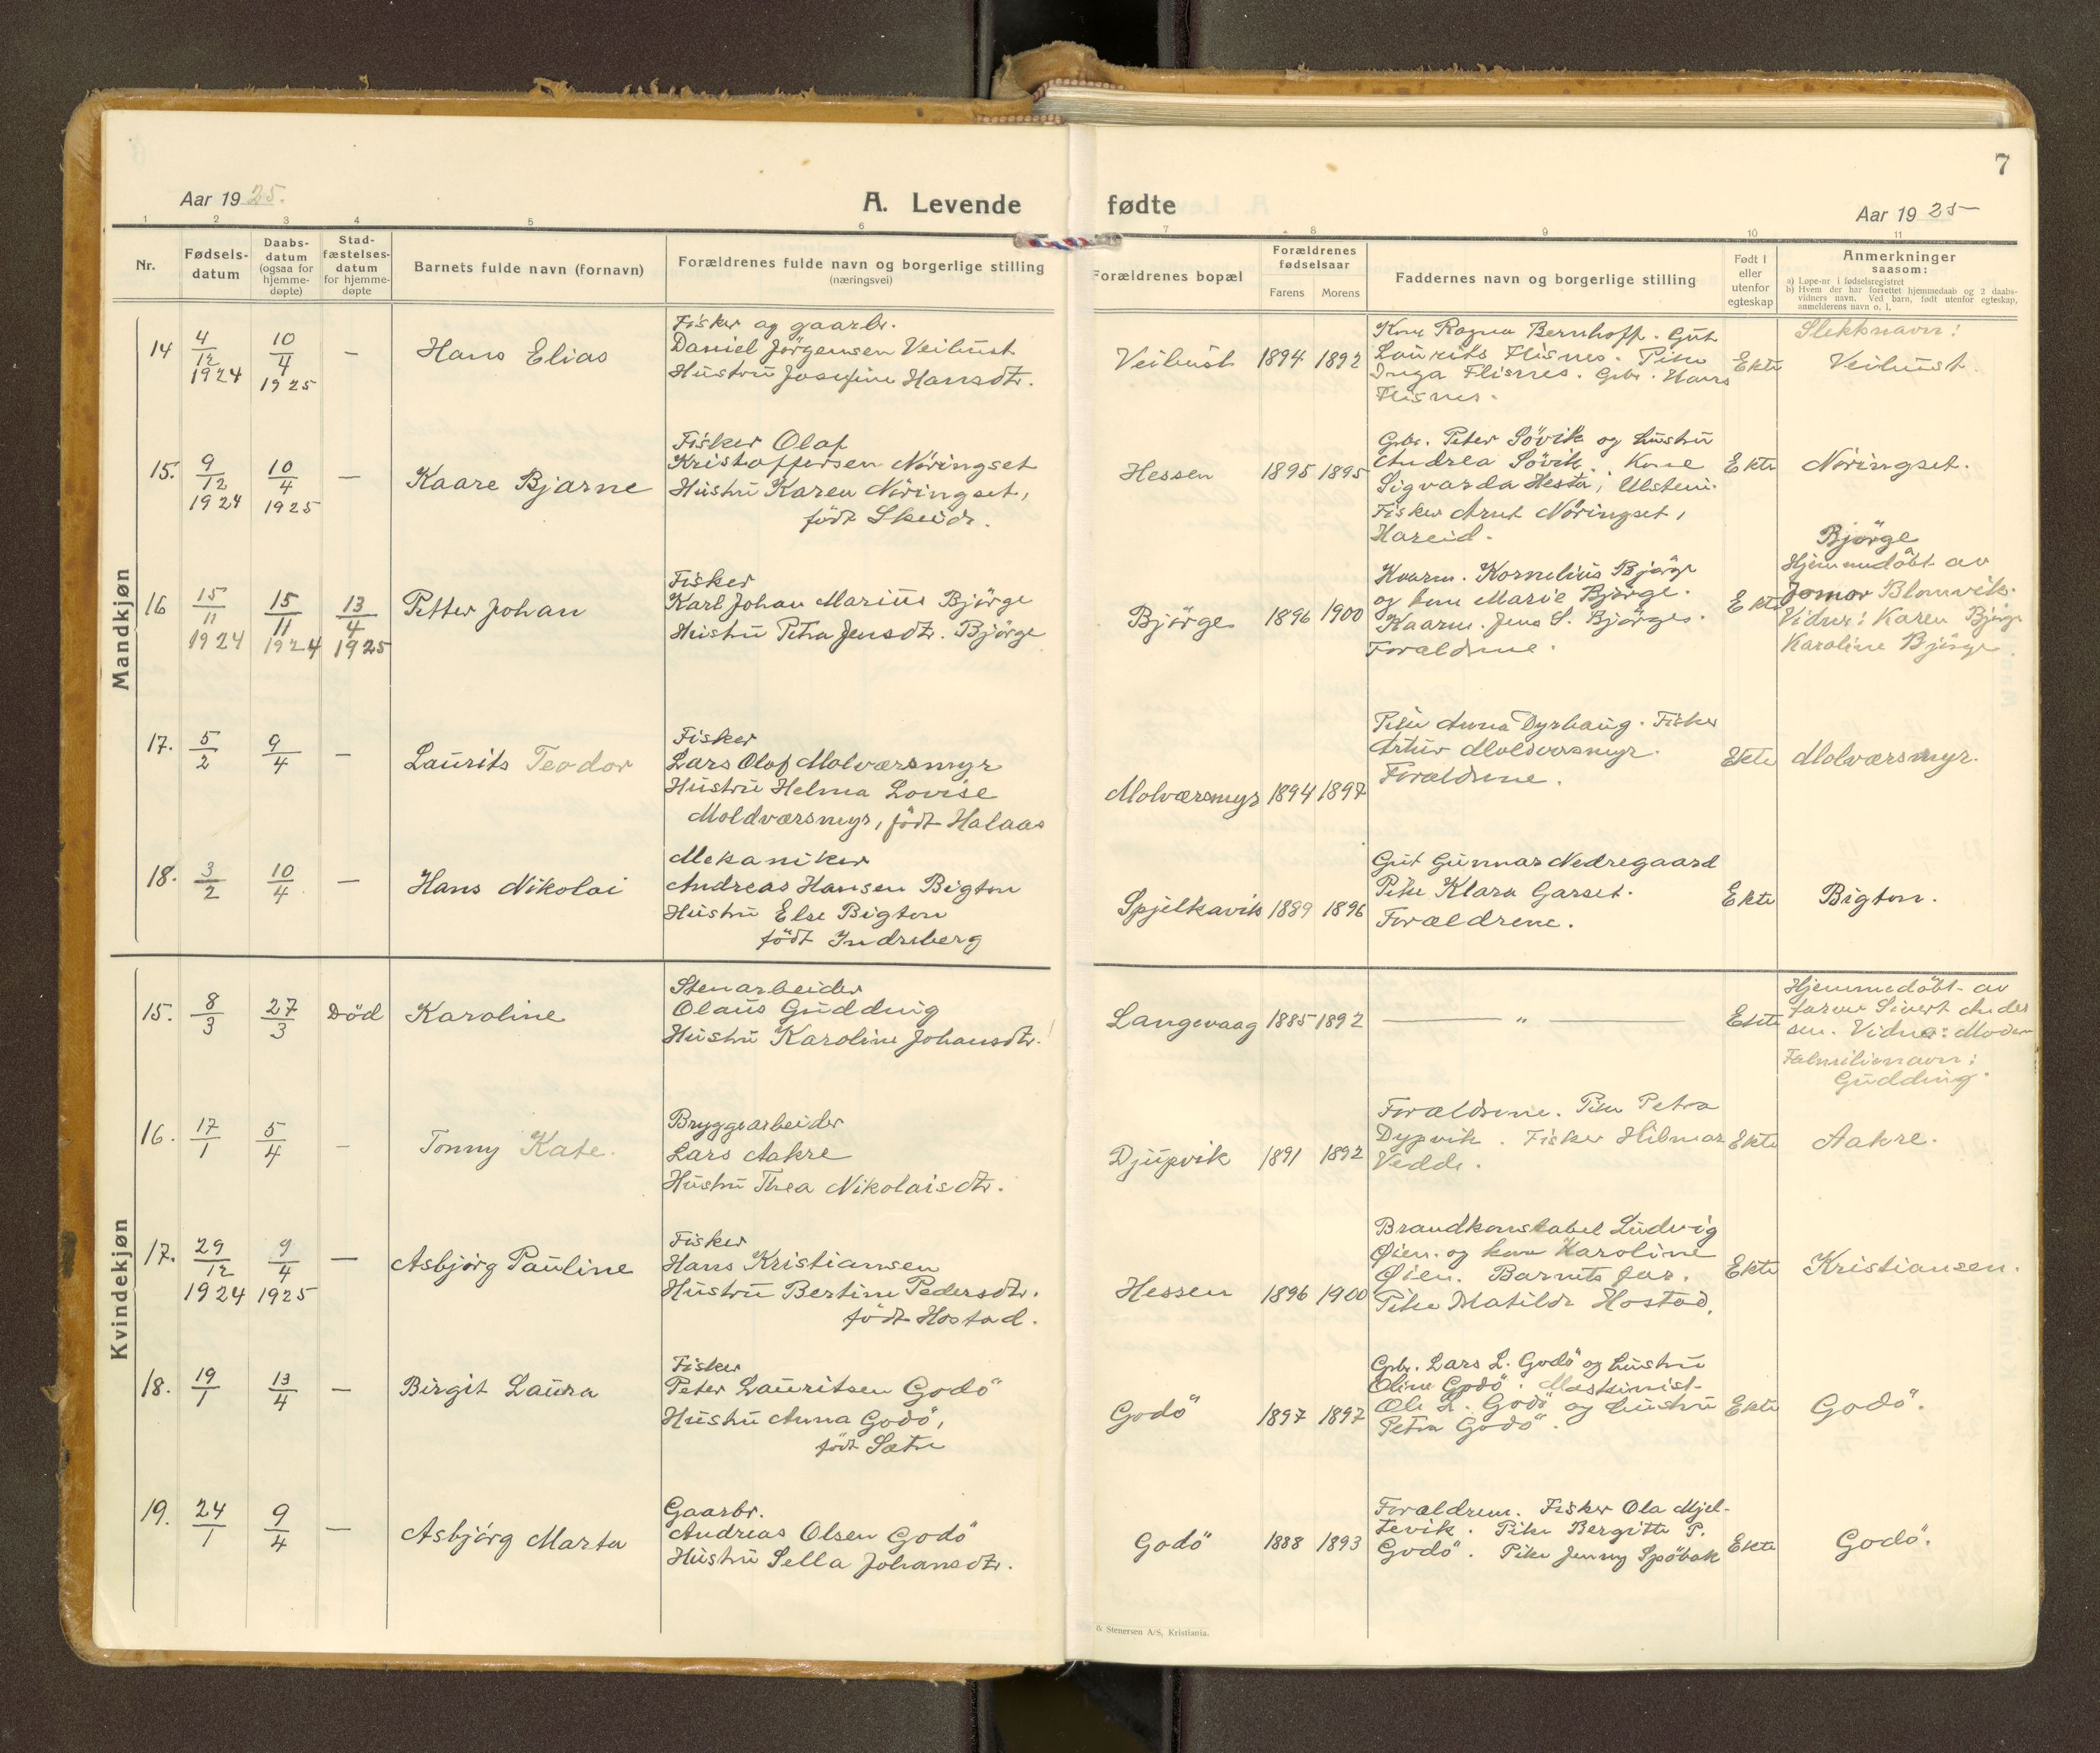 7
Aar 1925.
A. Levende
fødte
Aar 1925
1 2 3 4 5 6 7 8 9 10 11
Nr.
Fødsels-
datum
Daabs-
datum
(ogsaa for
hjemme-
døpte)
Stad-
fæstelses-
datum
for hjemme-
døpte
Barnets fulde navn (fornavn)
Forældrenes fulde navn og borgerlige stilling
(næringsvei)
Forældrenes bopæl
Forældrenes
fødselsaar
Farens Morens
Faddernes navn og borgerlige stilling
Født i
eller
utenfor
egteskap
Anmerkninger
saasom:
a) Løpe-nr i fødselsregistret
b) Hvem der har forrettet hjemmedaab og 2 daabs-
vidners navn. Ved barn, født utenfor egteskap,
anmelderens navn o. l.
Mandkjøn
14 4/12 1924 10/4 1925 — Hans Elias
Fisker og gaarbr.
Daniel Jörgensen Veibust
Hustru Josefine Hansdtr.
Veibust 1894 1892
Kone Ragna Bernhoff. Gut
Laurits Flisnes. Pike
Inga Flisnes. Gbr. Hans
Flisnes.
Ekte
Slektsnavn:
Veibust.
15. 9/12 1924 10/4 1925 — Kaare Bjarne
Fisker Olaf
Kristoffersen Nöringset
Hustru Karen Nöringset,
födt Skeide.
Hessen 1895 1895
Gbr. Peter Sövik og hustru
Andrea Sövik. Kone
Sigvarda Hesta, Ulstein.
Fisker Arnt Nöringset,
Hareid.
Ekte
Nöringset.
16 15/11 1924 15/11 1924 13/4 1925 Petter Johan
Fisker
Karl Johan Marius Bjørge
Hustru Petra Jensdtr. Bjørge
Bjørge 1896 1900
Kaarm. Kornelius Bjørge
og kone Marie Bjørge.
Kaarm. Jens S. Bjørge.
Forældrene.
Ekte
Bjørge
Hjemmedöbt av
Jomor Blomvik.
Vidner: Karen Bjørge
Karoline Bjørge.
17. 5/2 9/4 — Laurits Teodor
Fisker
Lars Olaf Molværsmyr
Hustru Helma Lovise
Moldværsmyr, födt Halaas
Molværsmyr 1894 1897
Pike Anna Dyrhaug. Fisker
Artur Moldværsmyr.
Forældrene.
Ekte
Molværsmyr.
18. 3/2 10/4 — Hans Nikolai
Mekaniker
Andreas Hansen Bigton
Hustru Else Bigton
födt Indreberg
Spjelkavik 1889 1896
Gut Gunnar Nedregaard
Pike Klara Garset.
Forældrene.
Ekte
Bigton.
Kvindekjøn
15. 8/3 27/3 Död Karoline
Stenarbeider
Olaus Gudding
Hustru Karoline Johansdtr.
Langevaag 1885 1892
— „ —
Ekte
Hjemmedöbt av
farver Sivert Ander
sen. Vidne: Moder
Familienavn:
Gudding.
16. 17/1 5/4 — Tonny Kate.
Bryggearbeider
Lars Aakre
Hustru Thea Nikolaisdtr.
Djupvik 1891 1892
Forældrene. Pike Petra
Dypvik. Fisker Hilmar
Vedde.
Ekte
Aakre.
17. 29/12 1924 9/4 1925 — Asbjørg Pauline
Fisker
Hans Kristiansen
Hustru Bertine Pedersdtr.
födt Hostad.
Hessen 1896 1900
Brandkonstabel Ludvig
Øien. og kone Karoline
Øien. Barnets far.
Pike Matilde Hostad.
Ekte
Kristiansen.
18. 19/1 13/4 — Birgit Laura
Fisker
Peter Lauritsen Godö
Hustru Anna Godö,
födt Sætre
Godö 1897 1897
Gbr. Lars L. Godö og hustru
Oline Godö. Maskinist
Ole L. Godö og hustru
Petra Godö.
Ekte
Godö.
19. 24/1 9/4 — Asbjörg Marta
Gaarbr.
Andreas Olsen Godö
Hustru Sella Johansdtr.
Godö 1888 1893
Forældrene. Fisker Ola Mjel-
tevik. Pike Bergitte P.
Godö. Pike Jenny Spöbak
Ekte
Godö.
& Stenersen A/S, Kristiania.